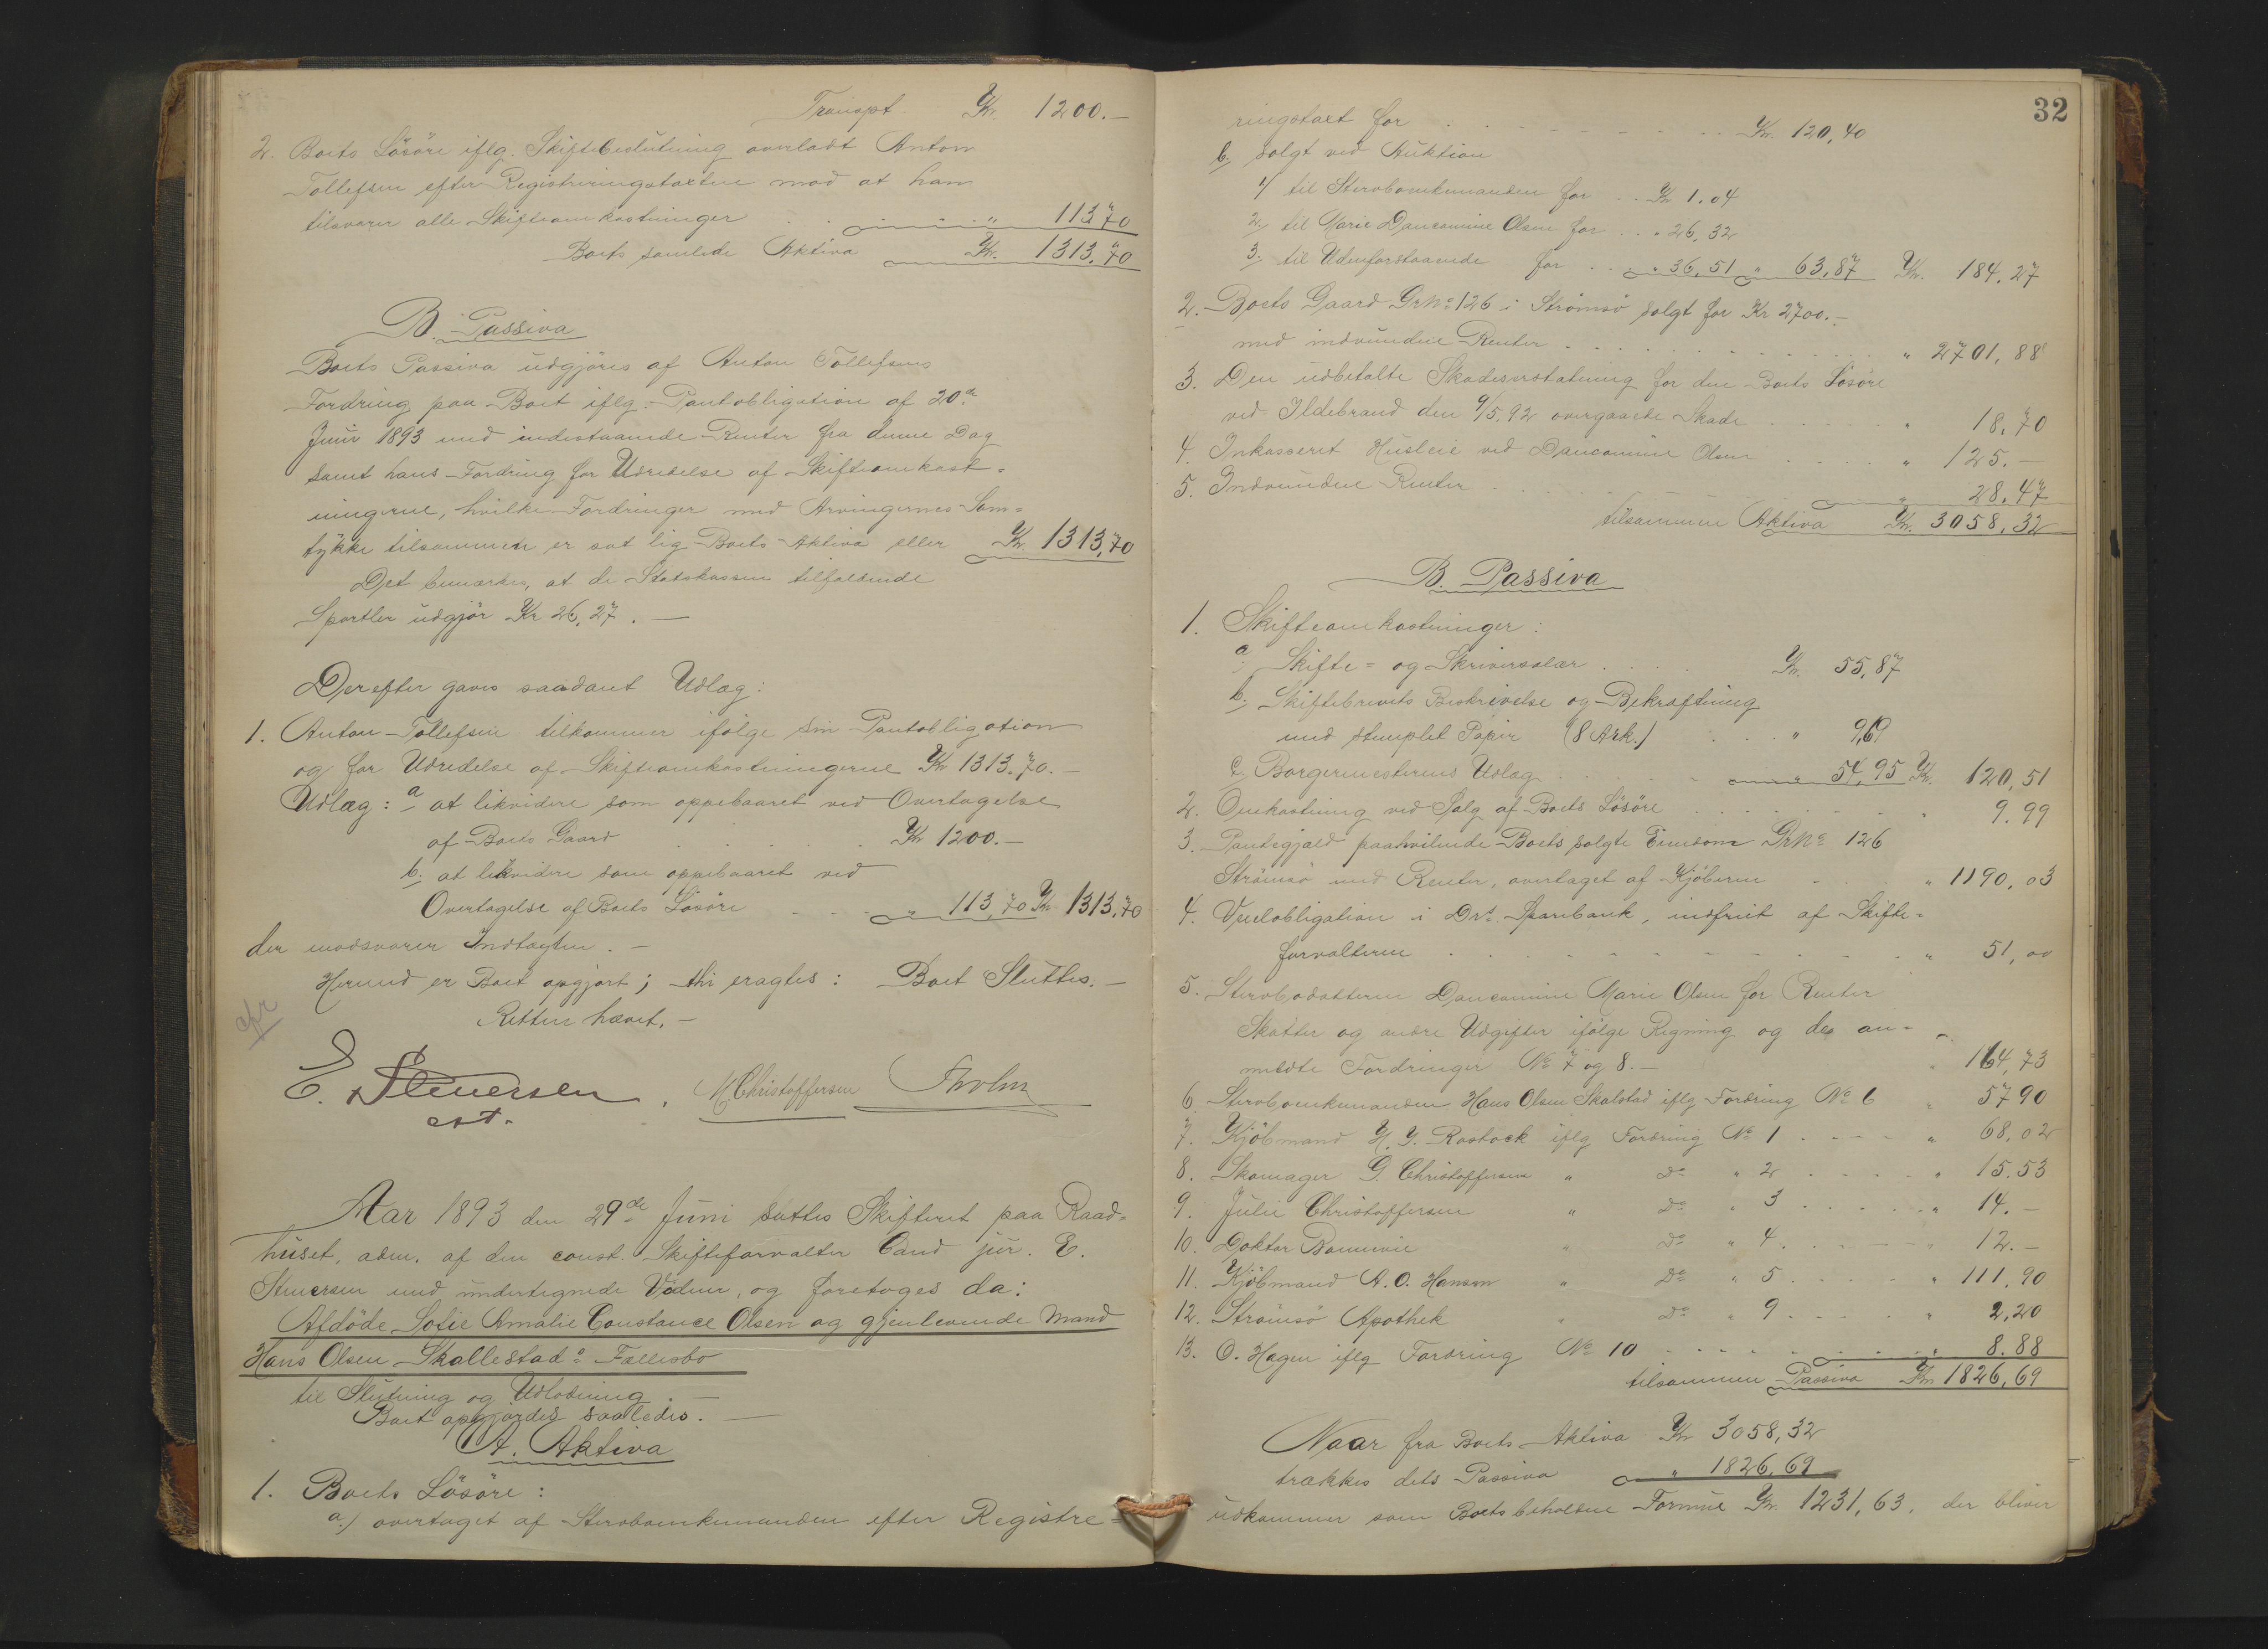 Transpt. Kr. 1200.–
2. Boets Lösöre iflg. Skiftebeslutning overladt Anton
Tollefsen efter Registreringstaxten mod at han
tilsvarer alle Skifteomkostninger . . . . " 113,70
Boets samlede Aktiva Kr. 1313,70
B. Passiva
Boets Passiva udgjöres af Anton Tollefsens
Fordring paa Boet iflg. Pantobligation af 20de
Juni 1893 med indestaaende Renter fra denne Dag
samt hans Fordring for Udredelse af Skifteomkost=
ningerne, hvilke Fordringer med Arvingernes Sam=
tykke tilsammen er sat lig Boets Aktiva eller Kr. 1313,70
Det bemærkes, at de Statskassen tilfaldende
Sportler udgjør Kr 26,27. –
Derefter gaves saadant Udlæg:
1. Anton Tollefsen tilkommer ifölge sin Pantobligation
og for Udredelse af Skifteomkostningerne Kr 1313.70.–
Udlæg: a at likvidere som oppebaaret ved Overtagelse
af Boets Gaard . . . . . Kr 1200.–
b. at likvidere som oppebaaret ved
Overtagelse af Boets Lösöre . . . " 113,70 Kr. 1313,70
der modsvarer Indtægten. –
Hermed er Boet opgjort; thi eragtes: Boet Sluttes. –
Retten hævet. –
cfr
E. Stenersen
cst.
M. Christoffersen Tholm
Aar 1893 den 29de Juni sattes Skifteret paa Raad=
huset, adm. af den const. Skifteforvalter Cand jur. E.
Stenersen med undertegnede Vidner, og foretoges da:
Afdöde Sofie Amalie Constance Olsen og gjenlevende Mand
Hans Olsen Skallestads Fællesbo
til Slutning og Udlodning. –
Boet opgjordes saaledes. –
A. Aktiva
1. Boets Lösöre:
a) overtaget af Stervboenkemanden efter Registre=
32
ringstaxt for . . . . . . . Kr. 120,40
b. solgt ved Auktion
1/ til Stervboenkemanden for . . Kr 1.04
2/ til Marie Daucamine Olsen for . . " 26,32
3. til Udenforstaaende for . . " 36,51 " 63,87 Kr. 184,27
2. Boets Gaard GrNo 126 i Strömsö solgt for Kr 2700.–
med indvundne Renter . . . . . . . " 2701,88
3. Den udbetalte Skadeserstatning for den Boets Lösöre
ved Ildebrand den 9/5.92 overgaaede Skade . . . . . " 18,70
4. Inkasseret Husleie ved Daucamine Olsen . . . . " 125.–
5. Indvundne Renter . . . . . . . " 28.47
tilsammen Aktiva Kr. 3058,32
B. Passiva
1. Skifteomkostninger:
a Skifte= og Skriversalær . . . . Kr. 55,87
b. Skiftebrevets Beskrivelse og Bekræftning
med stemplet Papir (8 Ark.) . . . " 9,69
c. Borgermesterens Udlæg . . . . . " 54,95 Kr. 120,51
2. Omkostning ved Salg af Boets Lösöre . . . . . " 9.99
3. Pantegjæld paahvilende Boets solgte Eiendom GrNo 126
Strömsö med Renter, overtaget af Kjöberen . . " 1190,03
4. Vexelobligation i Drs. Sparebank, indfriet af Skifte=
forvalteren . . . . . . . . . " 51,00
5. Stervbodatteren Daucamine Marie Olsen for Renter
Skatter og andre Udgifter ifölge Regning og des an=
meldte Fordringer No 7 og 8. – " 164,73
6. Stervboenkemanden Hans Olsen Skalstad iflg Fordring No 6 " 57 90
7. Kjöbmand H. Y. Rostock iflg Fordring No 1 . . . " 68,02
8. Skomager G. Christoffersen " Do " 2 . . . . " 15.53
9. Julie Christoffersen " Do " 3 . . . . . " 14.–
10. Doktor Bonnevie " Do " 4 . . . . " 12.–
11. Kjöbmand A. O. Hansen " Do " 5 . . . . " 111,90
12. Strömsö Apothek " Do " 9 . . . . " 2,20
13. O. Hagen iflg Fordring No 10 . . . . . . . " 8.88
tilsammen Passiva Kr 1826,69
Naar fra Boets Aktiva Kr 3058,32
trækkes dets Passiva " 1826,69
udkommer som Boets beholdne Formue Kr. 1231,63. der bliver